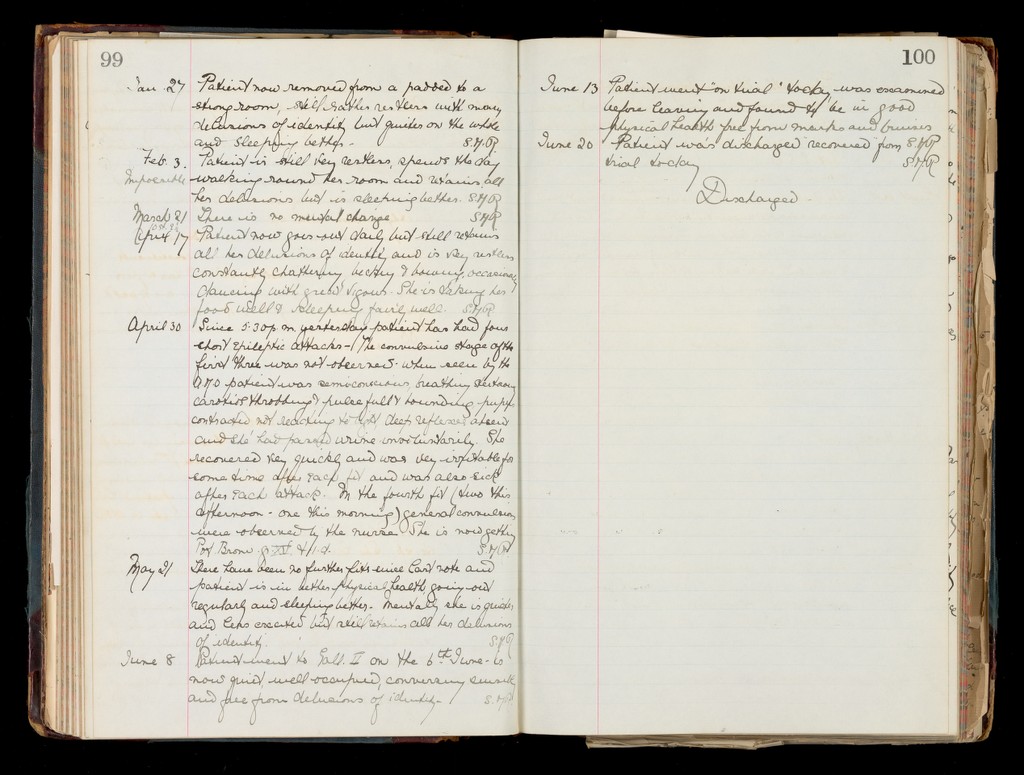 99
Jan 27 Patient now removed from a padded to a
strong room, still rather restless with many
delusions of identity but quieter on the whole
and sleeping better. S.H.R.
Feb 3. Patient is still very restless, spends the day
walking round her room and retains all
her delusions but is sleeping better. S.H.R
March 21 There is no mental change S.H.R
April 17 Patient now goes out daily but still retains
all her delusions of identity and is very restless
constantly chattering & bowing, occasionally
dancing with great vigour. She is taking her
food well & sleeping fairly well. S.H.R.
April 30 Since 5.30 p.m. yesterday patient has had four
short Epileptic attacks - (The convulsive stage of the
first three was not observed. when seen by the
A.M.O patient was semiconscious, breathing
carotids throbbing & pulse full & bounding - pupils
contracted not reacting to light deep reflexes absent
and she had passed urine involuntarily. She
recovered very quickly and was very irritable for
some time after each fit and was also sick
after each attack. In the fourth fit (two this
afternoon - one this morning) general convulsions
were observed by the nurse. She is now getting
Pot Brom gr XV t.d. S.H.R
May 21 There have been no further fits since last note and
patient is in better physical health going out
regularly and sleeping better. Mentally she is quieter
and less excited but still retains all her delusions
of identity. S.H.R
June 8 Patient went to Gall. II on the 6th June - is
now quiet, well occupied, conversing
and free from delusions of identity. S.H.R.
100
June 13 Patient went "on trial" today was examined
before leaving and found to be in good
physical health free from marks and bruises
S.H.R
June 20 Patient was discharged recovered from
trial today S.H.R
Discharged.